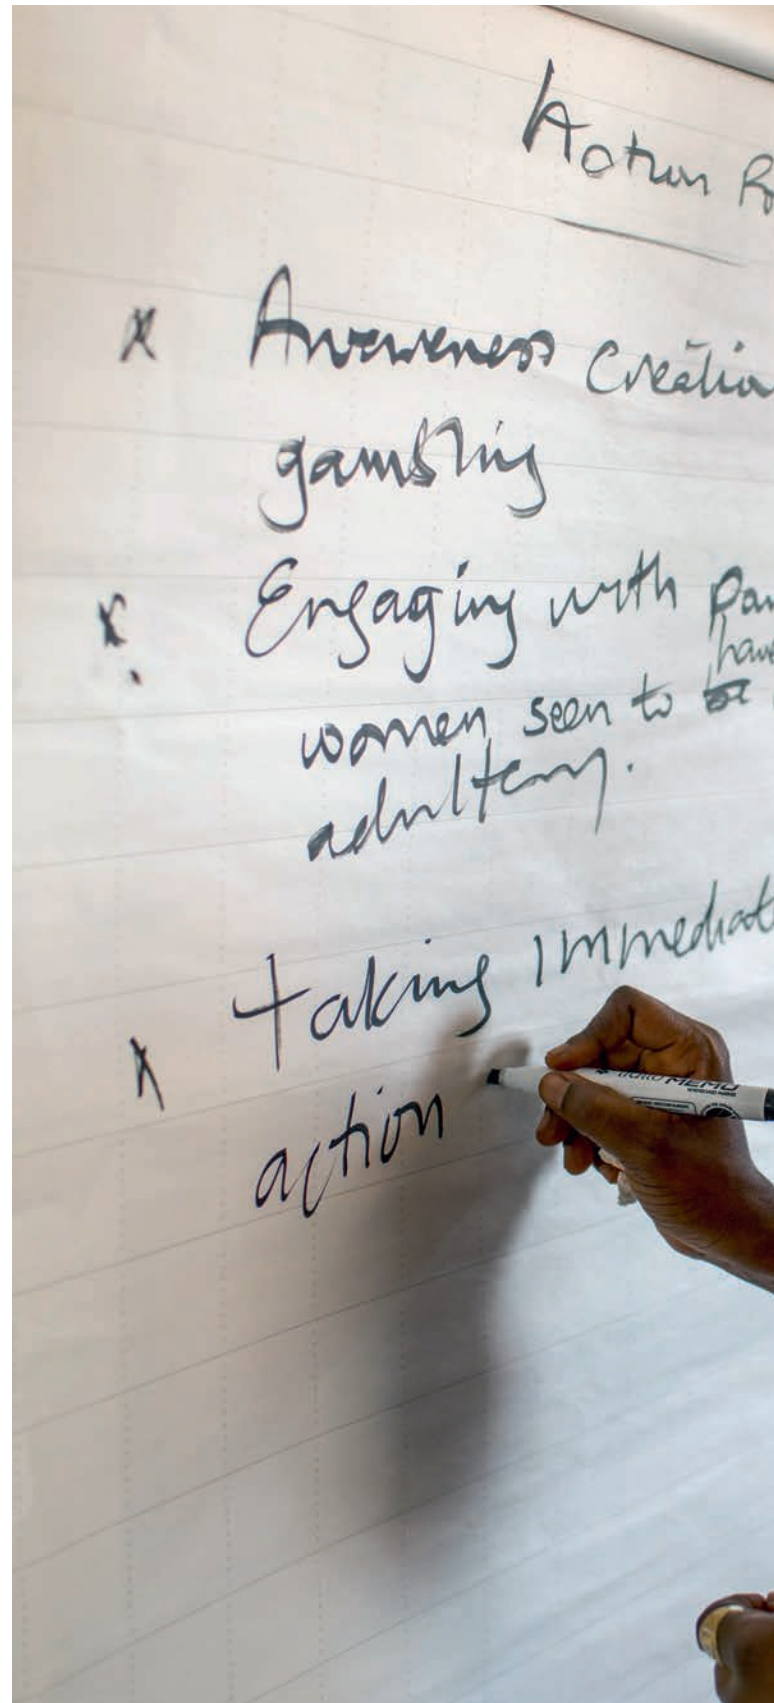 Action
Awareness Creation
gambling
Engaging with
have
women seen to
adultery.
Taking immediat
action
MEMO